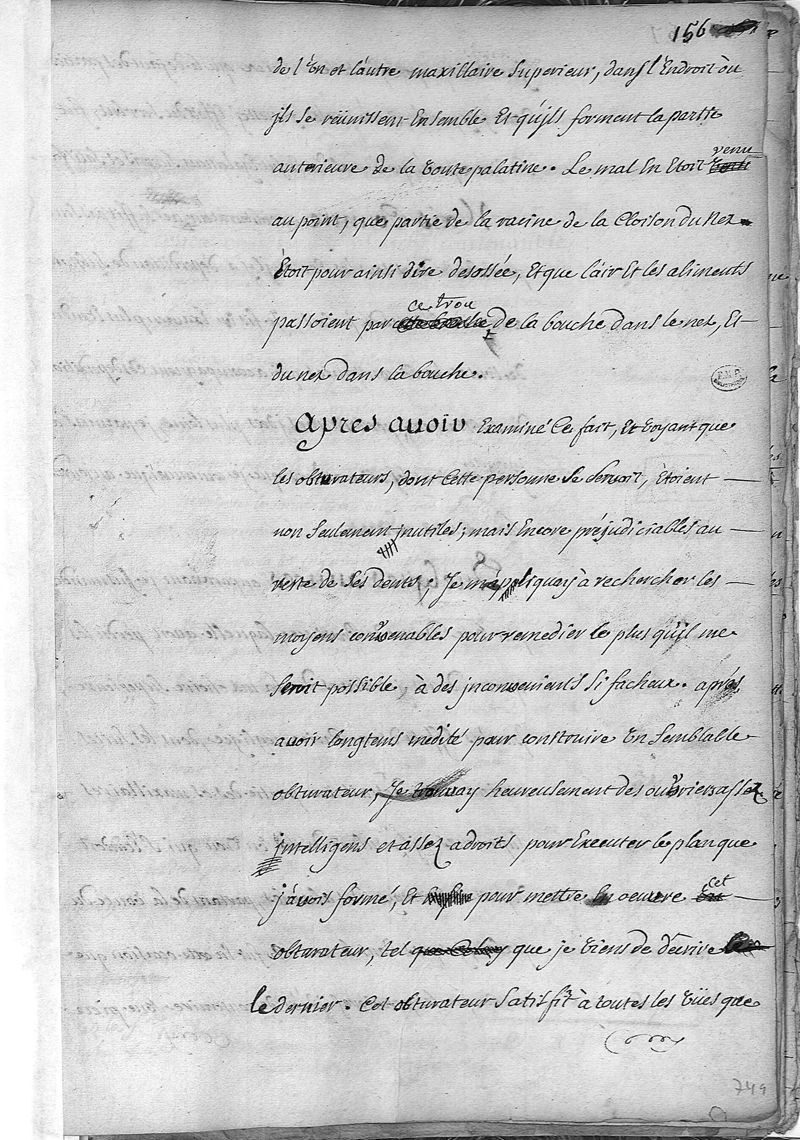 156
de l'un et l'autre maxillaire superieur, dans l'Endroit où
jls se réünissent Ensemble Et qu'jls forment la partie
anterieure de la voute palatine. Le mal En Etoit venu
au point, que partie de la racine de la Cloison du Nez
Étoit pour ainsi dire desossée, Et que l'air Et les aliments
passoient par ce trou de la bouche dans le nez, Et
du nez dans la bouche.
Apres auoir Examiné Ce fait, Et voyant que
les obturateurs, dont Cette personne Se Seruoit, Étoient
non Seulement jnutiles; mais Encore préjudiciables au
reste de Ses dents; Je m'appliquay à rechercher les
moyens convenables pour remedier le plus qu'jl me
Seroit possible, à des jnconvenients Si facheux. après
auoir longtems medité pour construire Un Semblable
obturateur, Je trouvay heureusement des ouvriers assez
jntelligens et assez adroits pour Executer le plan que
j'auois formé, Et pour mettre En oeuvre cet
obturateur, tel que je viens de décrire
le dernier. Cet obturateur Satisfit à toutes les vües que
749